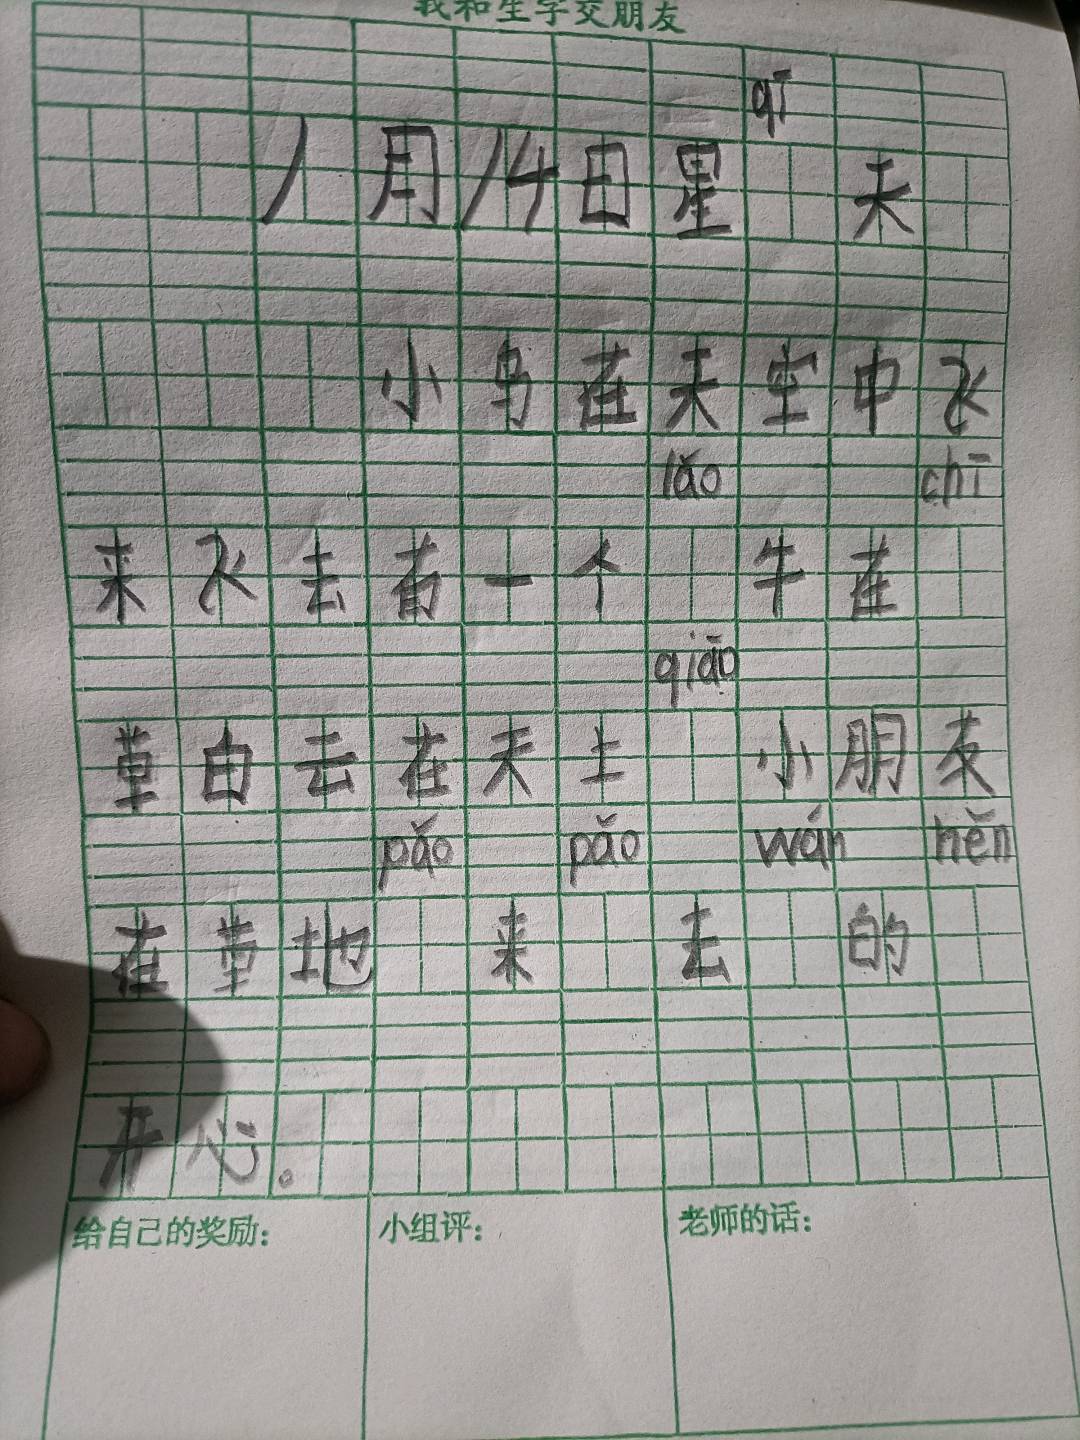 我和生字交朋友
1月14日星qī天
小鸟在天空中飞
来飞去有一个lǎo牛在chī
草白云在天上qiáo小朋友
在草地pǎo来pǎo去wán的hěn
开心。
给自己的奖励： 小组评： 老师的话：